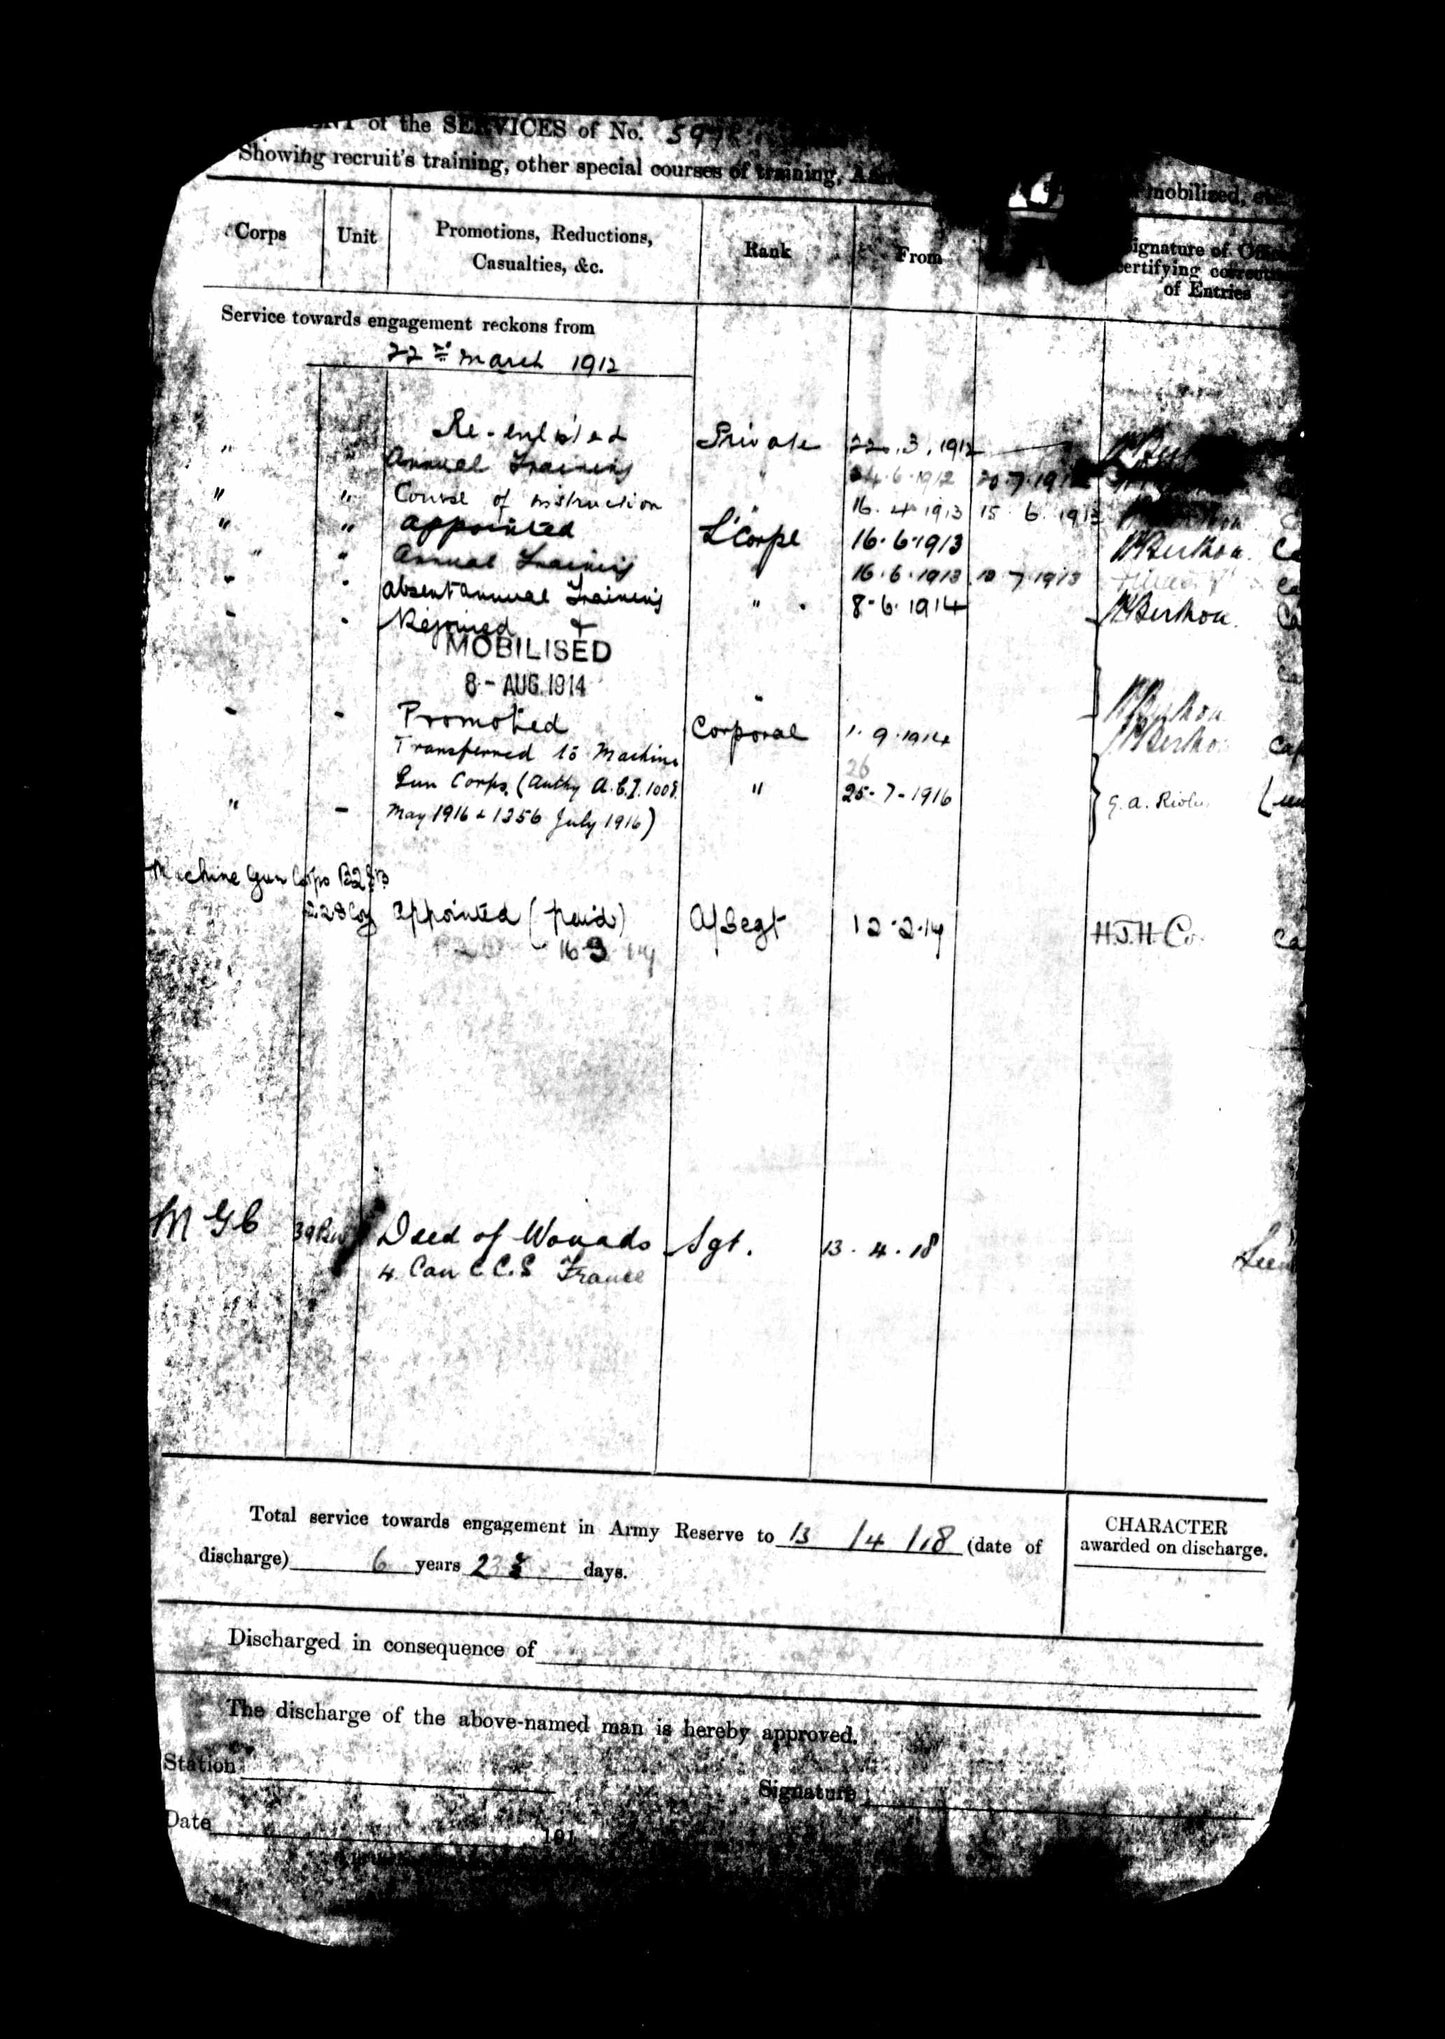 of the SERVICES of No. 597
Showing recruit's training, other special courses of training, mobilised, &c.
Corps Unit Promotions, Reductions, Casualties, &c. Rank From Signature of Officer certifying correctness of Entries
Service towards engagement reckons from
22nd March 1912
" " Re-enlisted Private 22.3.1912
Annual Training " 24.6.1912 20.7.191
" " Course of instruction " 16.4.1913 15.6.1913
" " Appointed L/Corpl 16.6.1913
" " Annual Training " 16.6.1913 10.7.1913
" " Absent annual Training " 8.6.1914
" " Rejoined &
MOBILISED
8 - AUG. 1914 "
" " Promoted Corporal 1.9.1914
Transferred to Machine
26
Gun Corps. (Authy A.C.I. 1008 " 25-7-1916 G. A.
" " May 1916 & 1256 July 1916)
Machine Gun Corps
228 Coy appointed (paid) A/Segt 12.2.17 H.J.H.
16 3 17
M G C 39 Bn Died of Wounds Sgt. 13.4.18
4 Can C.C.S France
Total service towards engagement in Army Reserve to 13/4/18 (date of
discharge) 6 years 23 days.
CHARACTER
awarded on discharge.
Discharged in consequence of
The discharge of the above-named man is hereby approved.
Station
Signature
Date 191